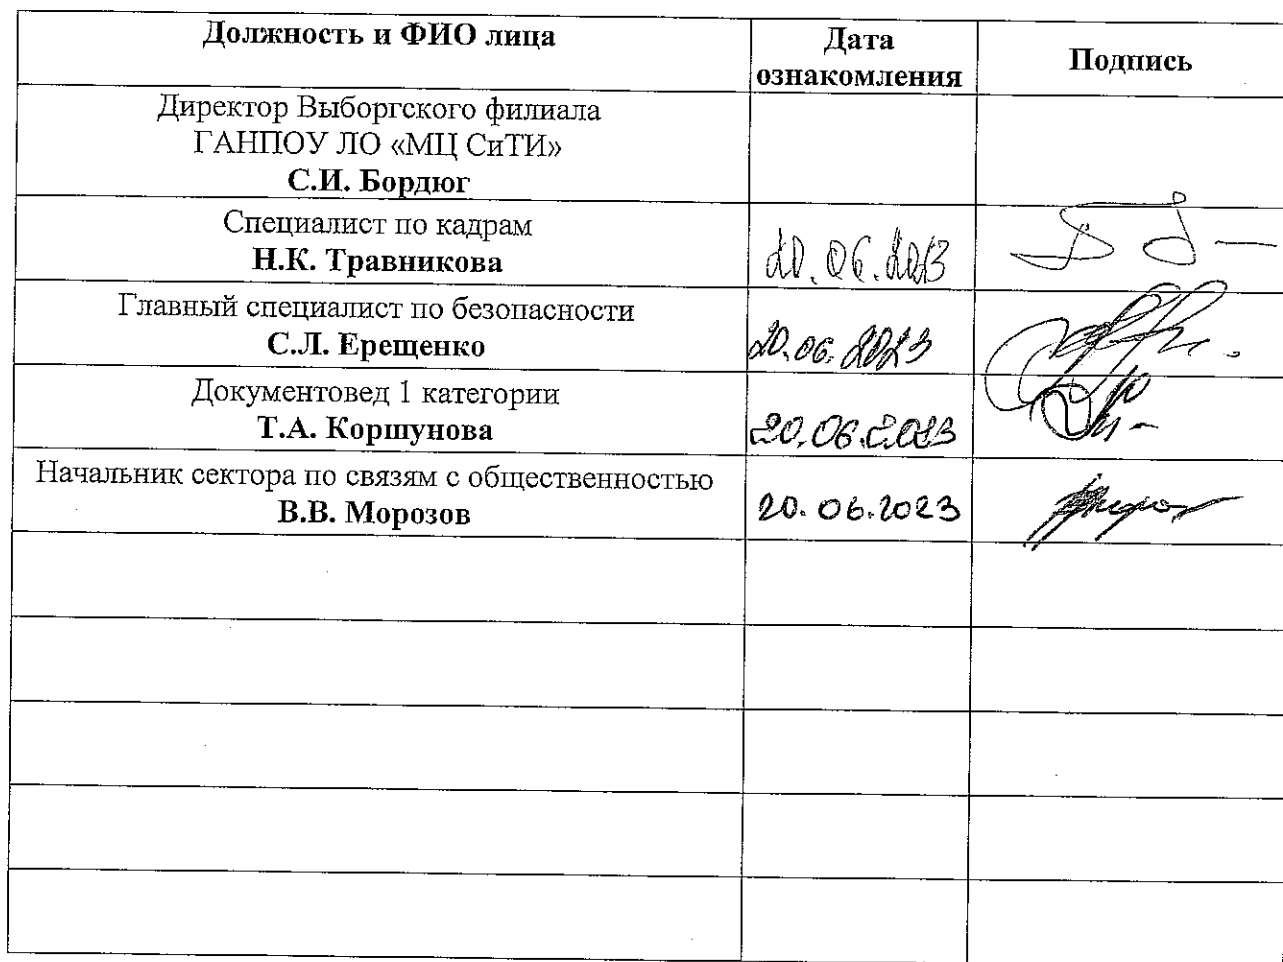 Должность и ФИО лица
Дата
ознакомления
Подпись
Директор Выборгского филиала
ГАНПОУ ЛО «МЦ СиТИ»
С.И. Бордюг
Специалист по кадрам
Н.К. Травникова
20.06.2023
Главный специалист по безопасности
С.Л. Ерещенко
20.06.2023
Документовед 1 категории
Т.А. Коршунова
20.06.2023
Начальник сектора по связям с общественностью
В.В. Морозов
20.06.2023